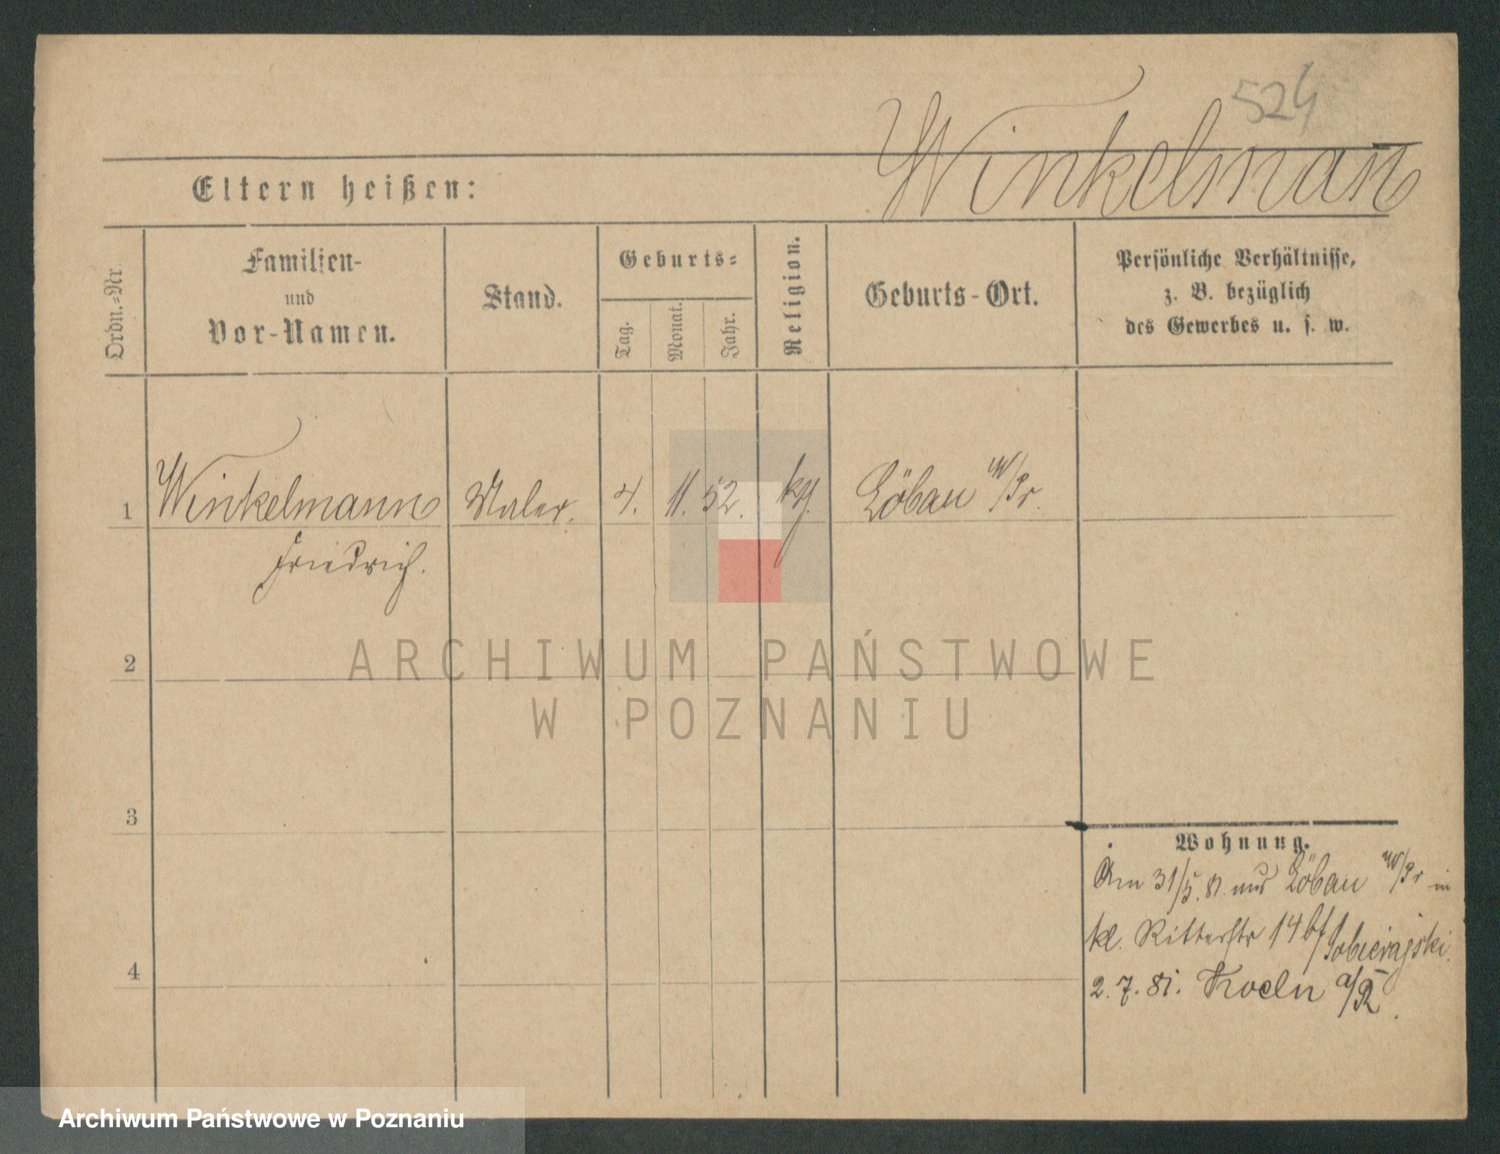 524
Winkelmann
Eltern heißen:
Ordn.-Nr
Familien-
und
Vor-Namen.
Stand.
Geburts=
Tag.
Monat.
Jahr.
Religion.
Geburts-Ort.
Persönliche Verhältnisse,
z. B. bezüglich
des Gewerbes u. s. w.
1 Winkelmann Maler. 4. 11. 52. Löbau W/Pr.
Friedrich.
2
3
4
Wohnung.
Am 31/5. 81. aus Löbau W/Pr in
kl. Ritterstr 14 Sobierajski.
2. 7. 81. Koeln a/R.
ARCHIWUM PAŃSTWOWE
W POZNANIU
Archiwum Państwowe w Poznaniu